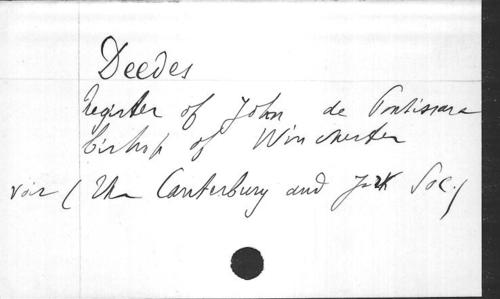 Deedes
Register of John de Pontissara
bishop of Winchester
voir (The Canterbury and York Soc.)